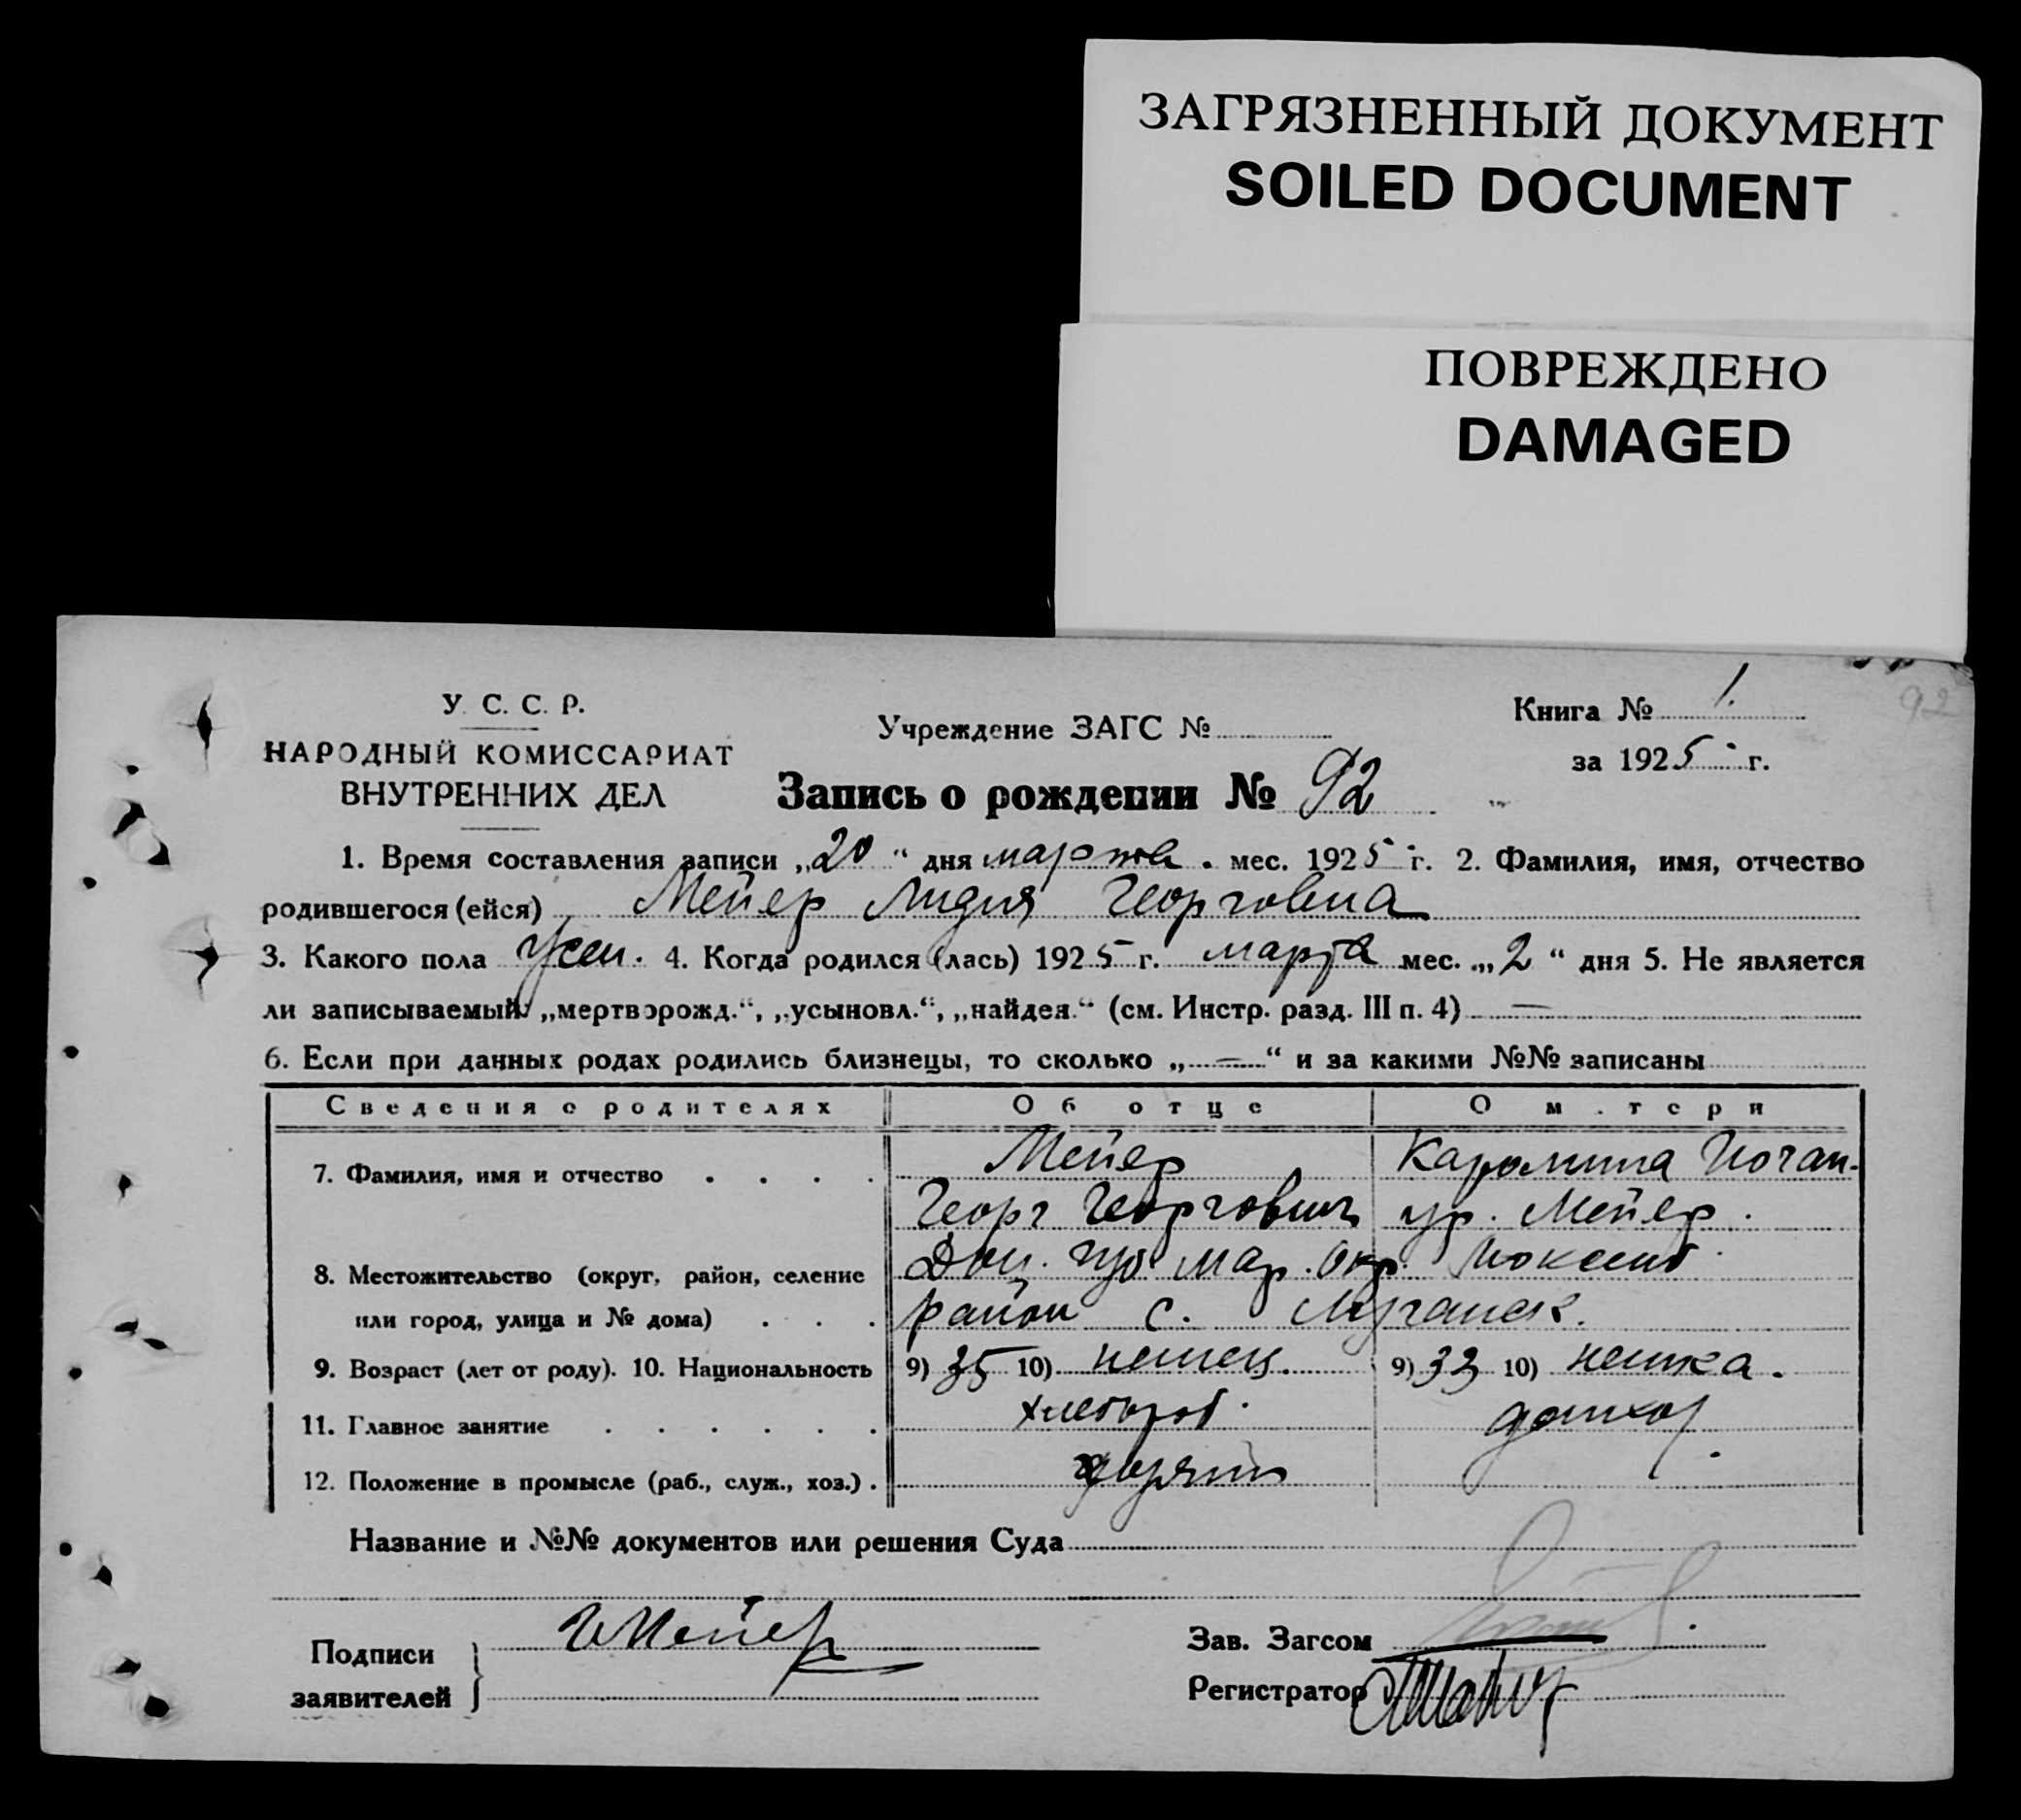 ЗАГРЯЗНЕННЫЙ ДОКУМЕНТ
SOILED DOCUMENT
ПОВРЕЖДЕНО
DAMAGED
92
У. С. С. Р.
НАРОДНЫЙ КОМИССАРИАТ
ВНУТРЕННИХ ДЕЛ
Учреждение ЗАГС №
Книга № 1.
за 1925 г.
Запись о рождении № 92
1. Время составления записи „20“ дня марта. мес. 1925 г. 2. Фамилия, имя, отчество
родившегося (ейся) Мейер Лидия Георговна
3. Какого пола жен. 4. Когда родился (лась) 1925 г. марта мес. „2“ дня 5. Не является
ли записываемый: „мертворожд.“, „усыновл.“, „найден.“ (см. Инстр. разд. III п. 4) —
6. Если при данных родах родились близнецы, то сколько „—“ и за какими №№ записаны
Сведения о родителях Об отце О матери
7. Фамилия, имя и отчество . . . . Мейер Каролина Иоган-
Георг Георгович ур. Мейер.
8. Местожительство (округ, район, селение Дон. губ. Мар. окр.
или город, улица и № дома) . . . район с. Луганск.
9. Возраст (лет от роду). 10. Национальность 9) 35 10) немец. 9) 33 10) немка.
11. Главное занятие . . . . . . хлебороб. домхоз.
12. Положение в промысле (раб., служ., хоз.) . хозяин
Название и №№ документов или решения Суда
Подписи
заявителей
Мейер
Зав. Загсом
Регистратор